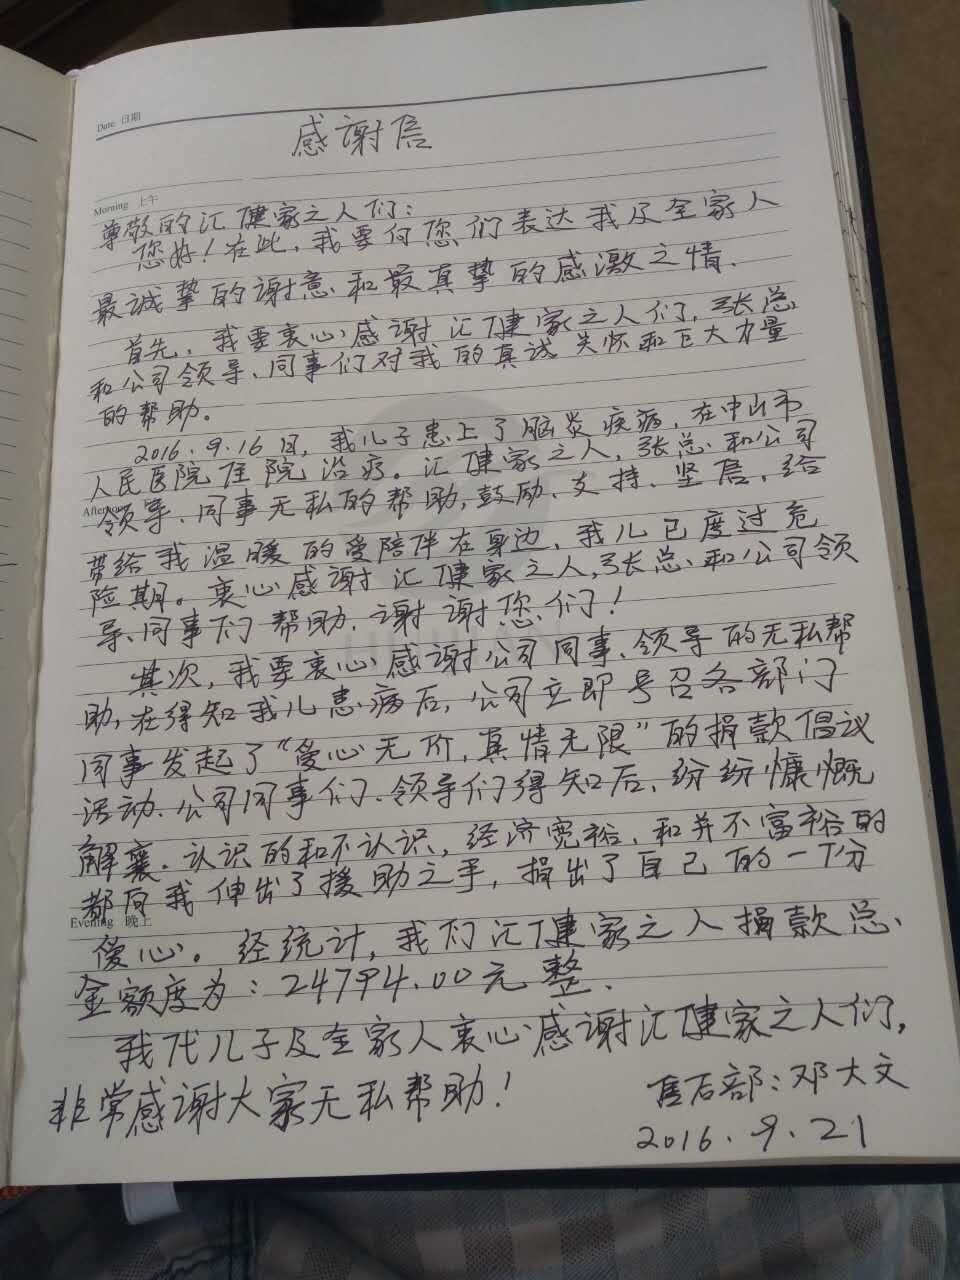 Date 日期
感谢信
Morning 上午
尊敬的汇健家之人们：
您好！在此，我要向您们表达我及全家人
最诚挚的谢意和最真挚的感激之情．
首先，我要衷心感谢汇健家之人们，张总
和公司领导、同事们对我的真诚关怀和巨大力量
的帮助。
2016.9.16日，我儿子患上了脑炎疾病，在中山市
人民医院住院治疗。汇健家之人，张总、和公司
Afternoon
领导、同事无私的帮助，鼓励、支持、坚信、给
带给我温暖的爱陪伴在身边，我儿已度过危
险期。衷心感谢汇健家之人，张总、和公司领
导、同事们帮助．谢谢您们！
其次，我要衷心感谢公司同事、领导的无私帮
助，在得知我儿患病后，公司立即号召各部门
同事发起了“爱心无价，真情无限”的捐款倡议
活动．公司同事们、领导们得知后，纷纷慷慨
解囊．认识的和不认识，经济宽裕，和并不富裕的
都向我伸出了援助之手，捐出了自己的一份
Evening 晚上
爱心。经统计，我们汇健家之人捐款总、
金额度为：24794.00元整．
我代儿子及全家人衷心感谢汇健家之人们，
非常感谢大家无私帮助！
售后部：邓大文
2016.9.21